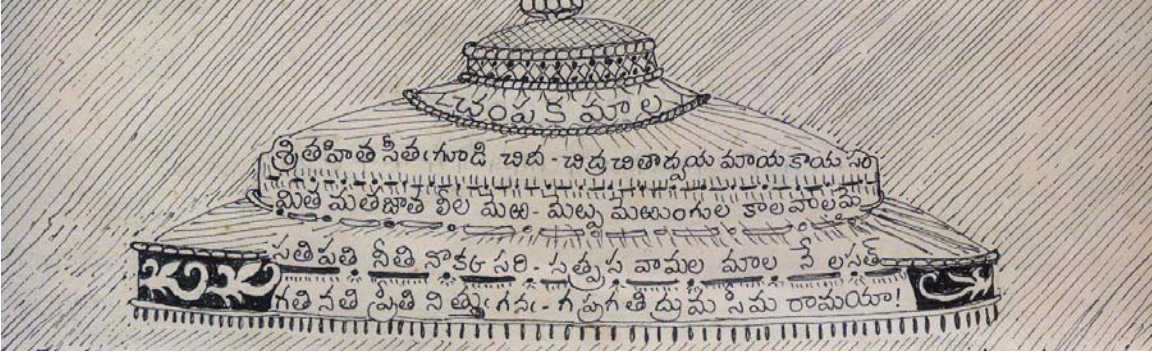 చంపకమాల
శ్రితహిత సీతఁగూడి చిద - చిద్రచితాద్వయ మాయ కాయ సం
మిత మతజాత లీల మెఱ - మట్ప మెఱుంగుల కాలవాలమై
సతిపతి నీతి నొక్క సరి - సత్ప్రస వామల మాల నే లసత్
గతి నతి ప్రీతి ని గన - గ ప్రగతి ద్రుమ సీమ రామయా!